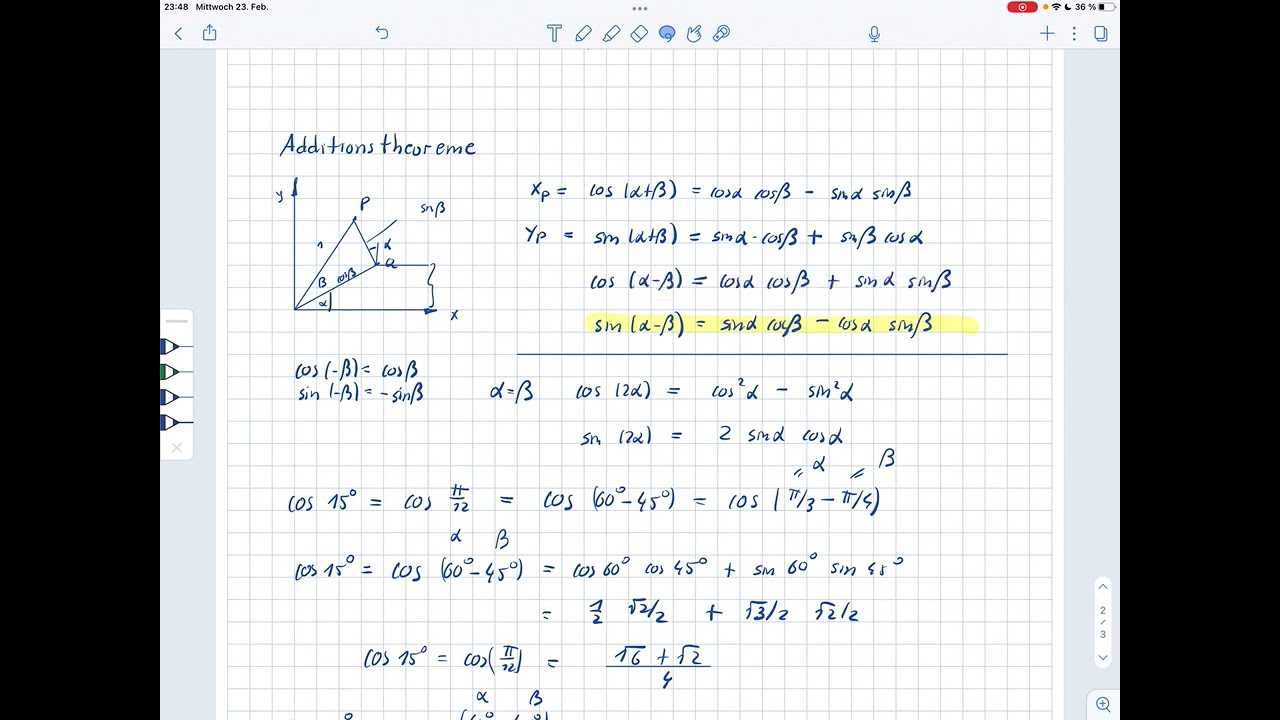 23:48 Mittwoch 23. Feb. 36 %
Additionstheoreme
y
P
sinβ
1
α
Q
β cosβ
α
x
xₚ = cos (α+β) = cosα cosβ - sinα sinβ
Yₚ = sin (α+β) = sinα·cosβ + sinβ cosα
cos (α-β) = cosα cosβ + sinα sinβ
sin (α-β) = sinα cosβ - cosα sinβ
cos (-β) = cosβ
sin (-β) = -sinβ
α=β cos (2α) = cos²α - sin²α
sin (2α) = 2 sinα cosα
α β
cos 15° = cos π/12 = cos (60°-45°) = cos (π/3 - π/4)
α β
cos 15° = cos (60°-45°) = cos 60° cos 45° + sin 60° sin 45°
= 1/2 √2/2 + √3/2 √2/2
cos 15° = cos(π/12) = (√6 + √2)/4
α β
2/3